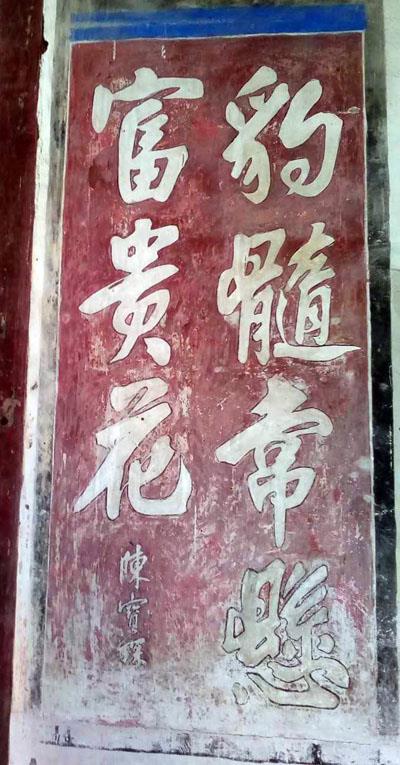 豹髓常懸
富貴花
陳寶琛